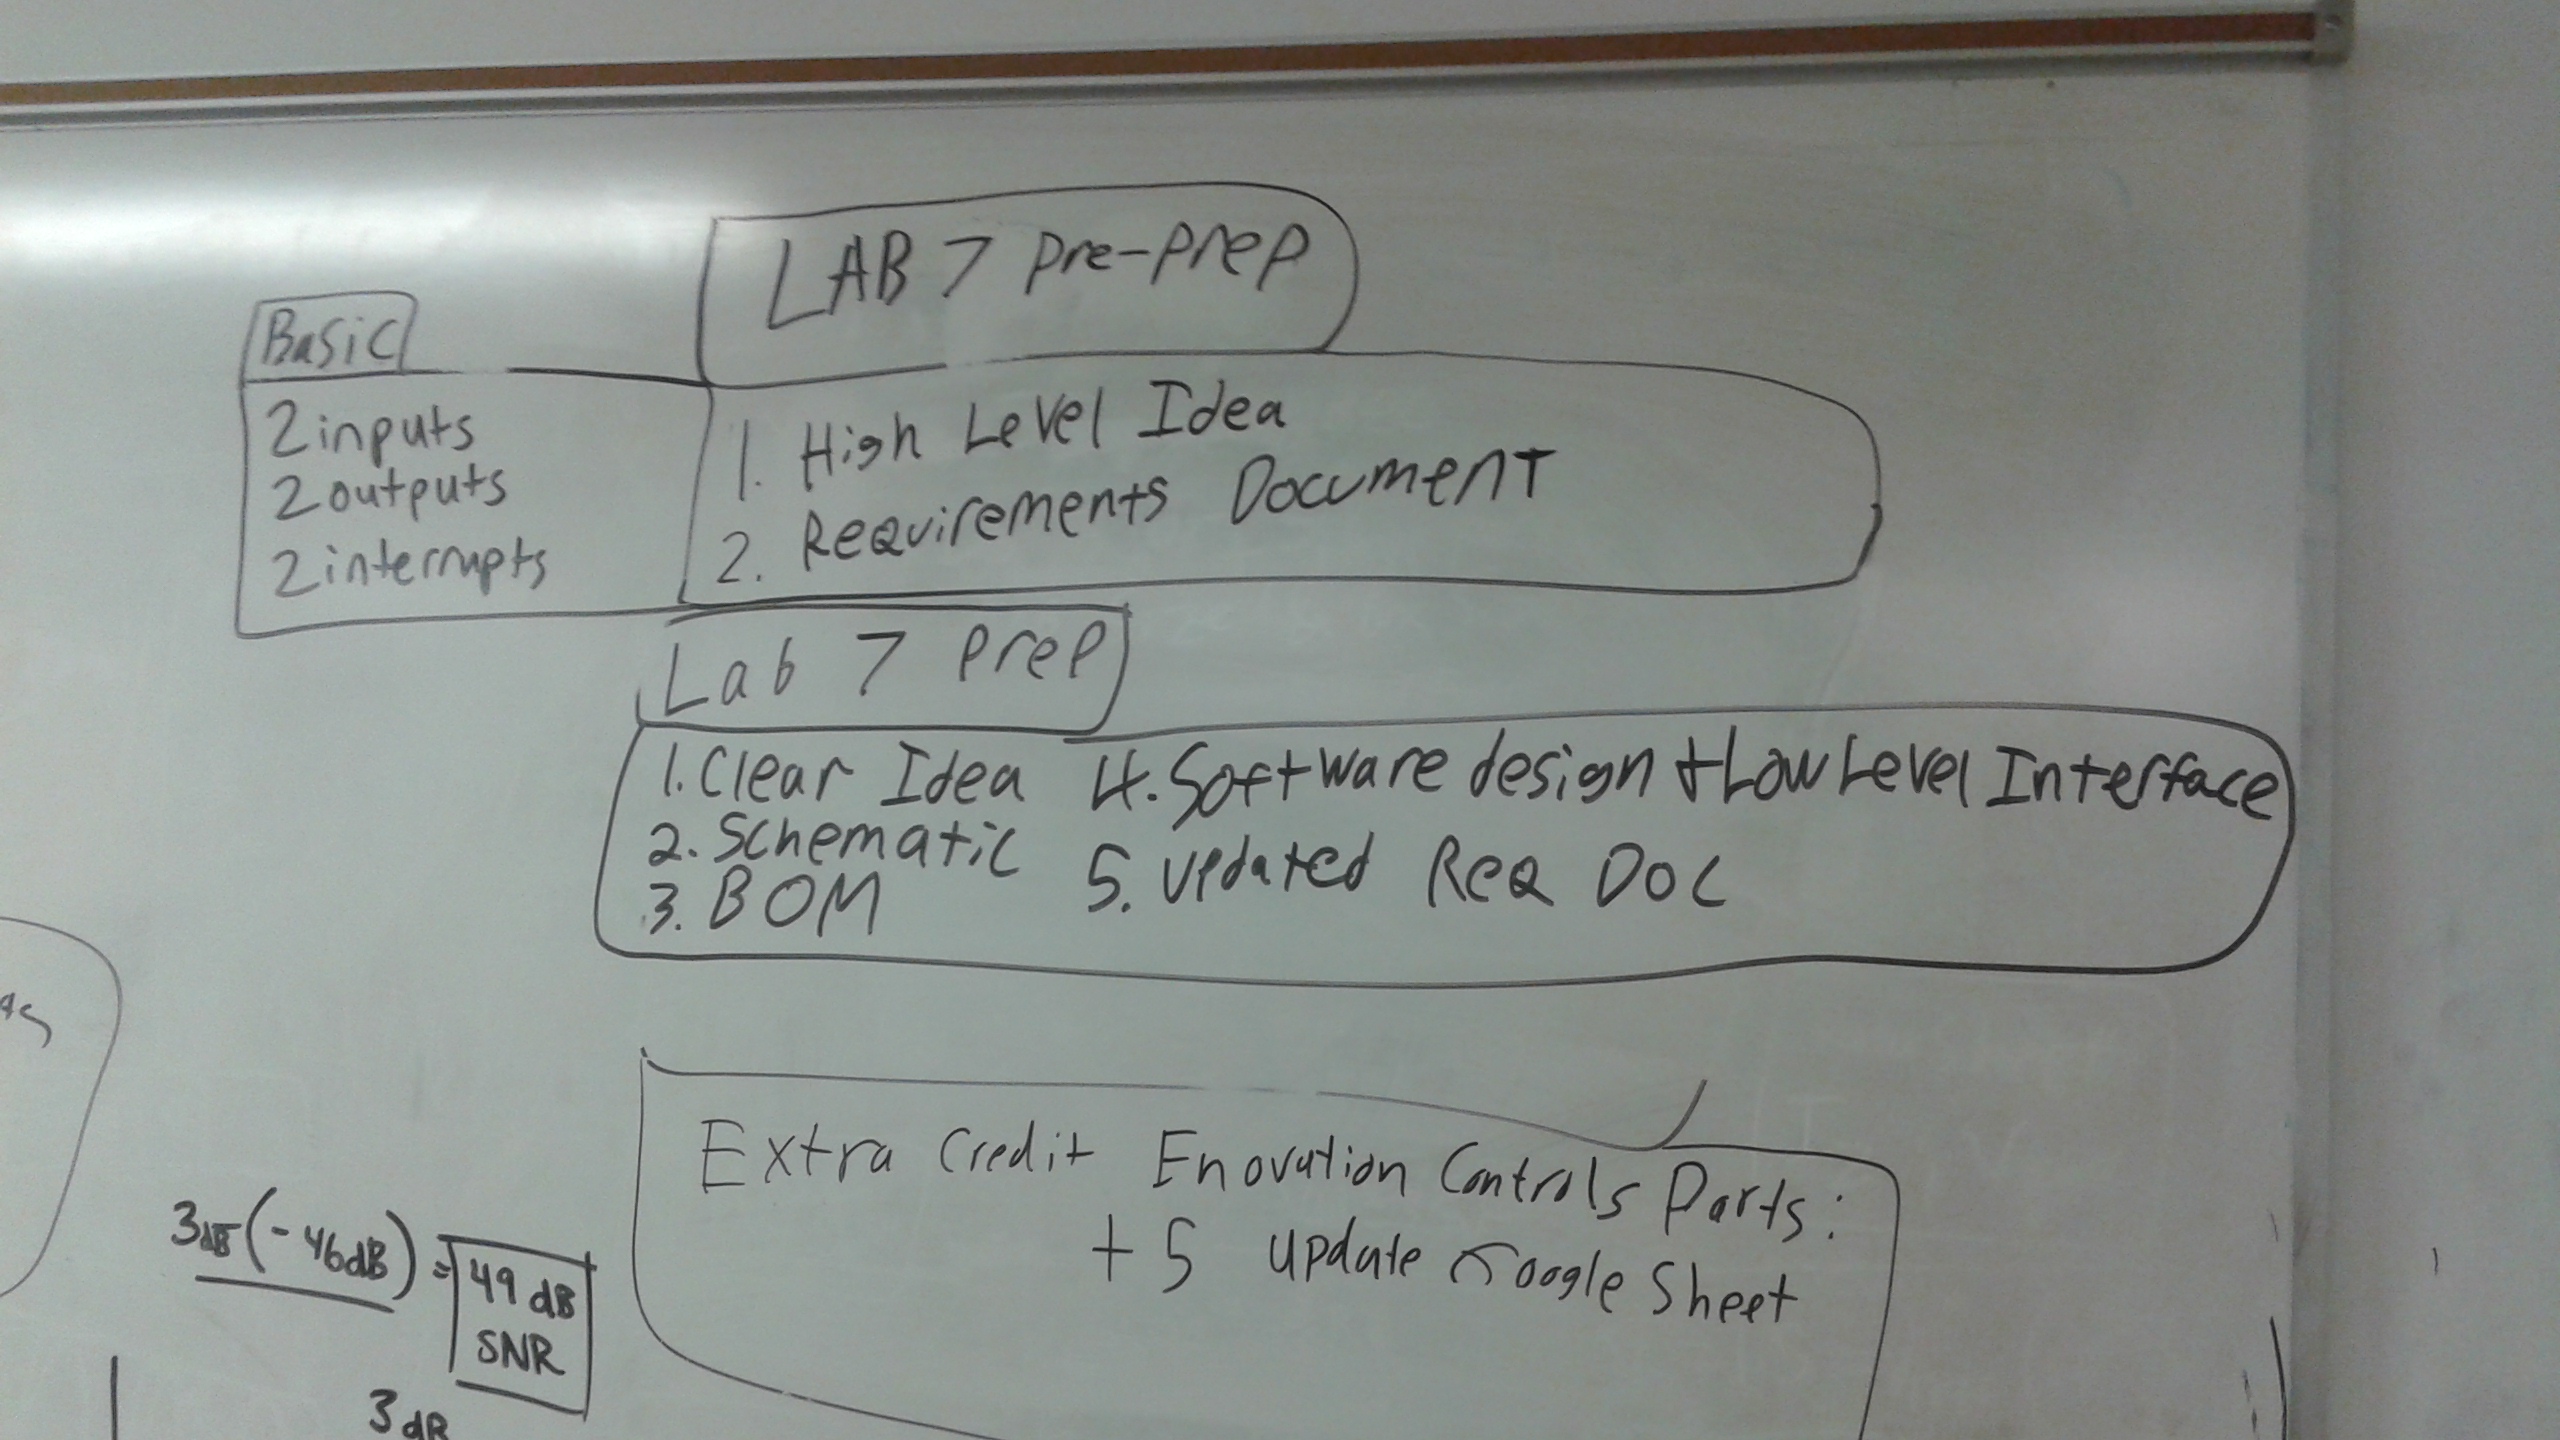 LAB 7 Pre-Prep
Basic
2 inputs
2 outputs
2 interrupts
1. High Level Idea
2. Requirements Document
Lab 7 Prep
1. Clear Idea
2. Schematic
3. BOM
4. Software design + Low Level Interface
5. Updated Req Doc
Extra Credit Enovation Controls Parts:
+5 update Google Sheet
3dB (-46dB) = 49 dB
SNR
3dB